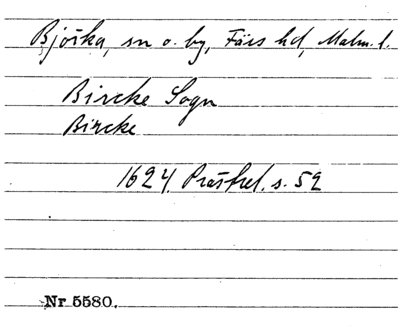 Bjorka, sn o. by, Färs hd, Malm. l.
Bircke Sogn
Bircke
1624. Prästrel. s. 52
Nr 5580.